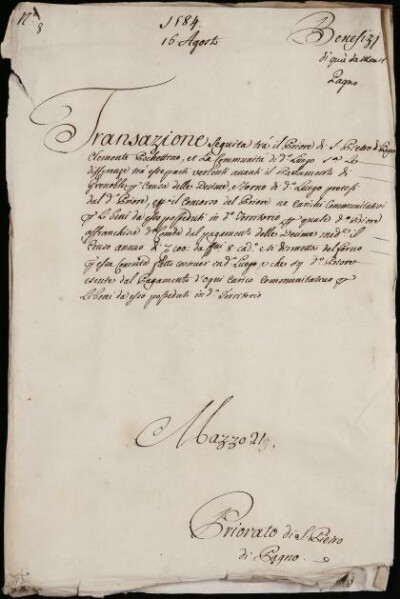 N.° 8
1584
16 Agosto
Benefizi
di quà da Monti
Pagno
Transazione seguita trà il Priore di S. Pietro di Pagno
Clemente et La Communità di d.° Luogo s.a Le
differenze trà esse parti vertenti avanti il Parlamento di
Grenoble, p causa delle Decime, e forno di d.° Luogo pretesi
dal d.° Priore, et p il concorso del Priore ne carichi Communitativi
p Li beni da esso posseduti in d.° Territorio, p quale d.° Priore
affranchisce d.a Com.tà dal pagamento delle Decime med.e il
Censo annuo di 200: da ffni 8 cad.° e si dismette del forno
p essa Com.tà fatto costruer in d.° Luogo, e che d.° Priore
esente dal Pagamento d'ogni carico Communitativo p
Li beni da esso posseduti in d.° Territorio
Mazzo 21
Priorato di S. Pietro
di Pagno